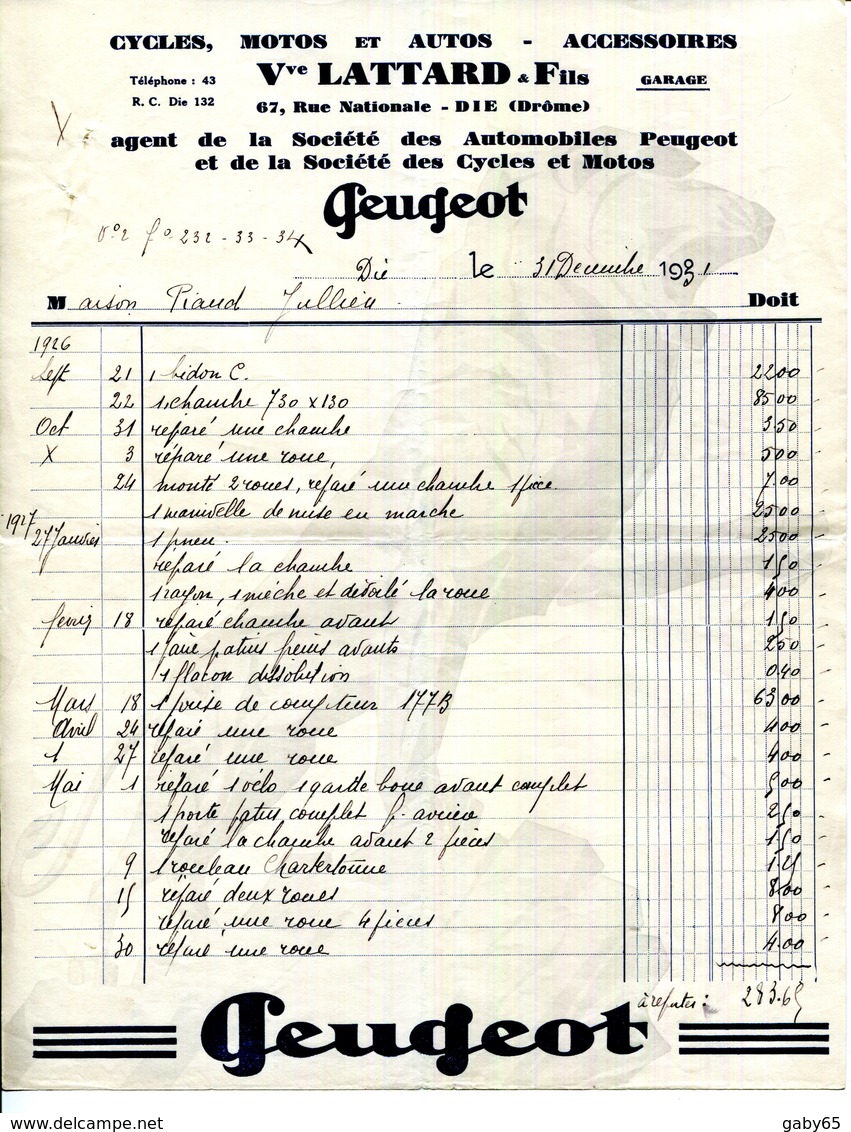 CYCLES, MOTOS ET AUTOS - ACCESSOIRES
Téléphone : 43
Vve LATTARD & Fils
GARAGE
R. C. Die 132
67, Rue Nationale - DIE (Drôme)
agent de la Société des Automobiles Peugeot
et de la Société des Cycles et Motos
Peugeot
232 - 33 - 34
Die le 31 Decembre 1931
Maison Piaud Jullien Doit
1926
Sept 21 1 bidon C. 22 00
22 1 chambre 730 x 130 85 00
Oct 31 reparé une chambre 3 50
X 3 réparé une roue, 5 00
24 monté 2 roues, reparé une chambre 1 piece 7.00
1 manivelle de mise en marche 25 00
1927 27 Janvier 1 pneu. 25 00
reparé la chambre 1 50
1 rayon, 1 mèche et dévoilé la roue 4 00
fevrier 18 reparé chambre avant 1 50
1 paire patins freins avants 2 50
1 flacon dissolution 0 40
Mars 18 1 prise de compteur 177B 63 00
Avril 24 reparé une roue 4 00
1 27 reparé une roue 4 00
Mai 1 reparé 1 vélo 1 garde boue avant complet 9 00
1 porte patins complet f. arrière 2 50
reparé la chambre avant 2 pièces 1 50
9 1 rouleau Chattertonne 1.25
15 réparé deux roues 8 00
reparé une roue 4 pieces 8 00
30 reparé une roue 4.00
à reporter : 283.65
Peugeot
gaby65